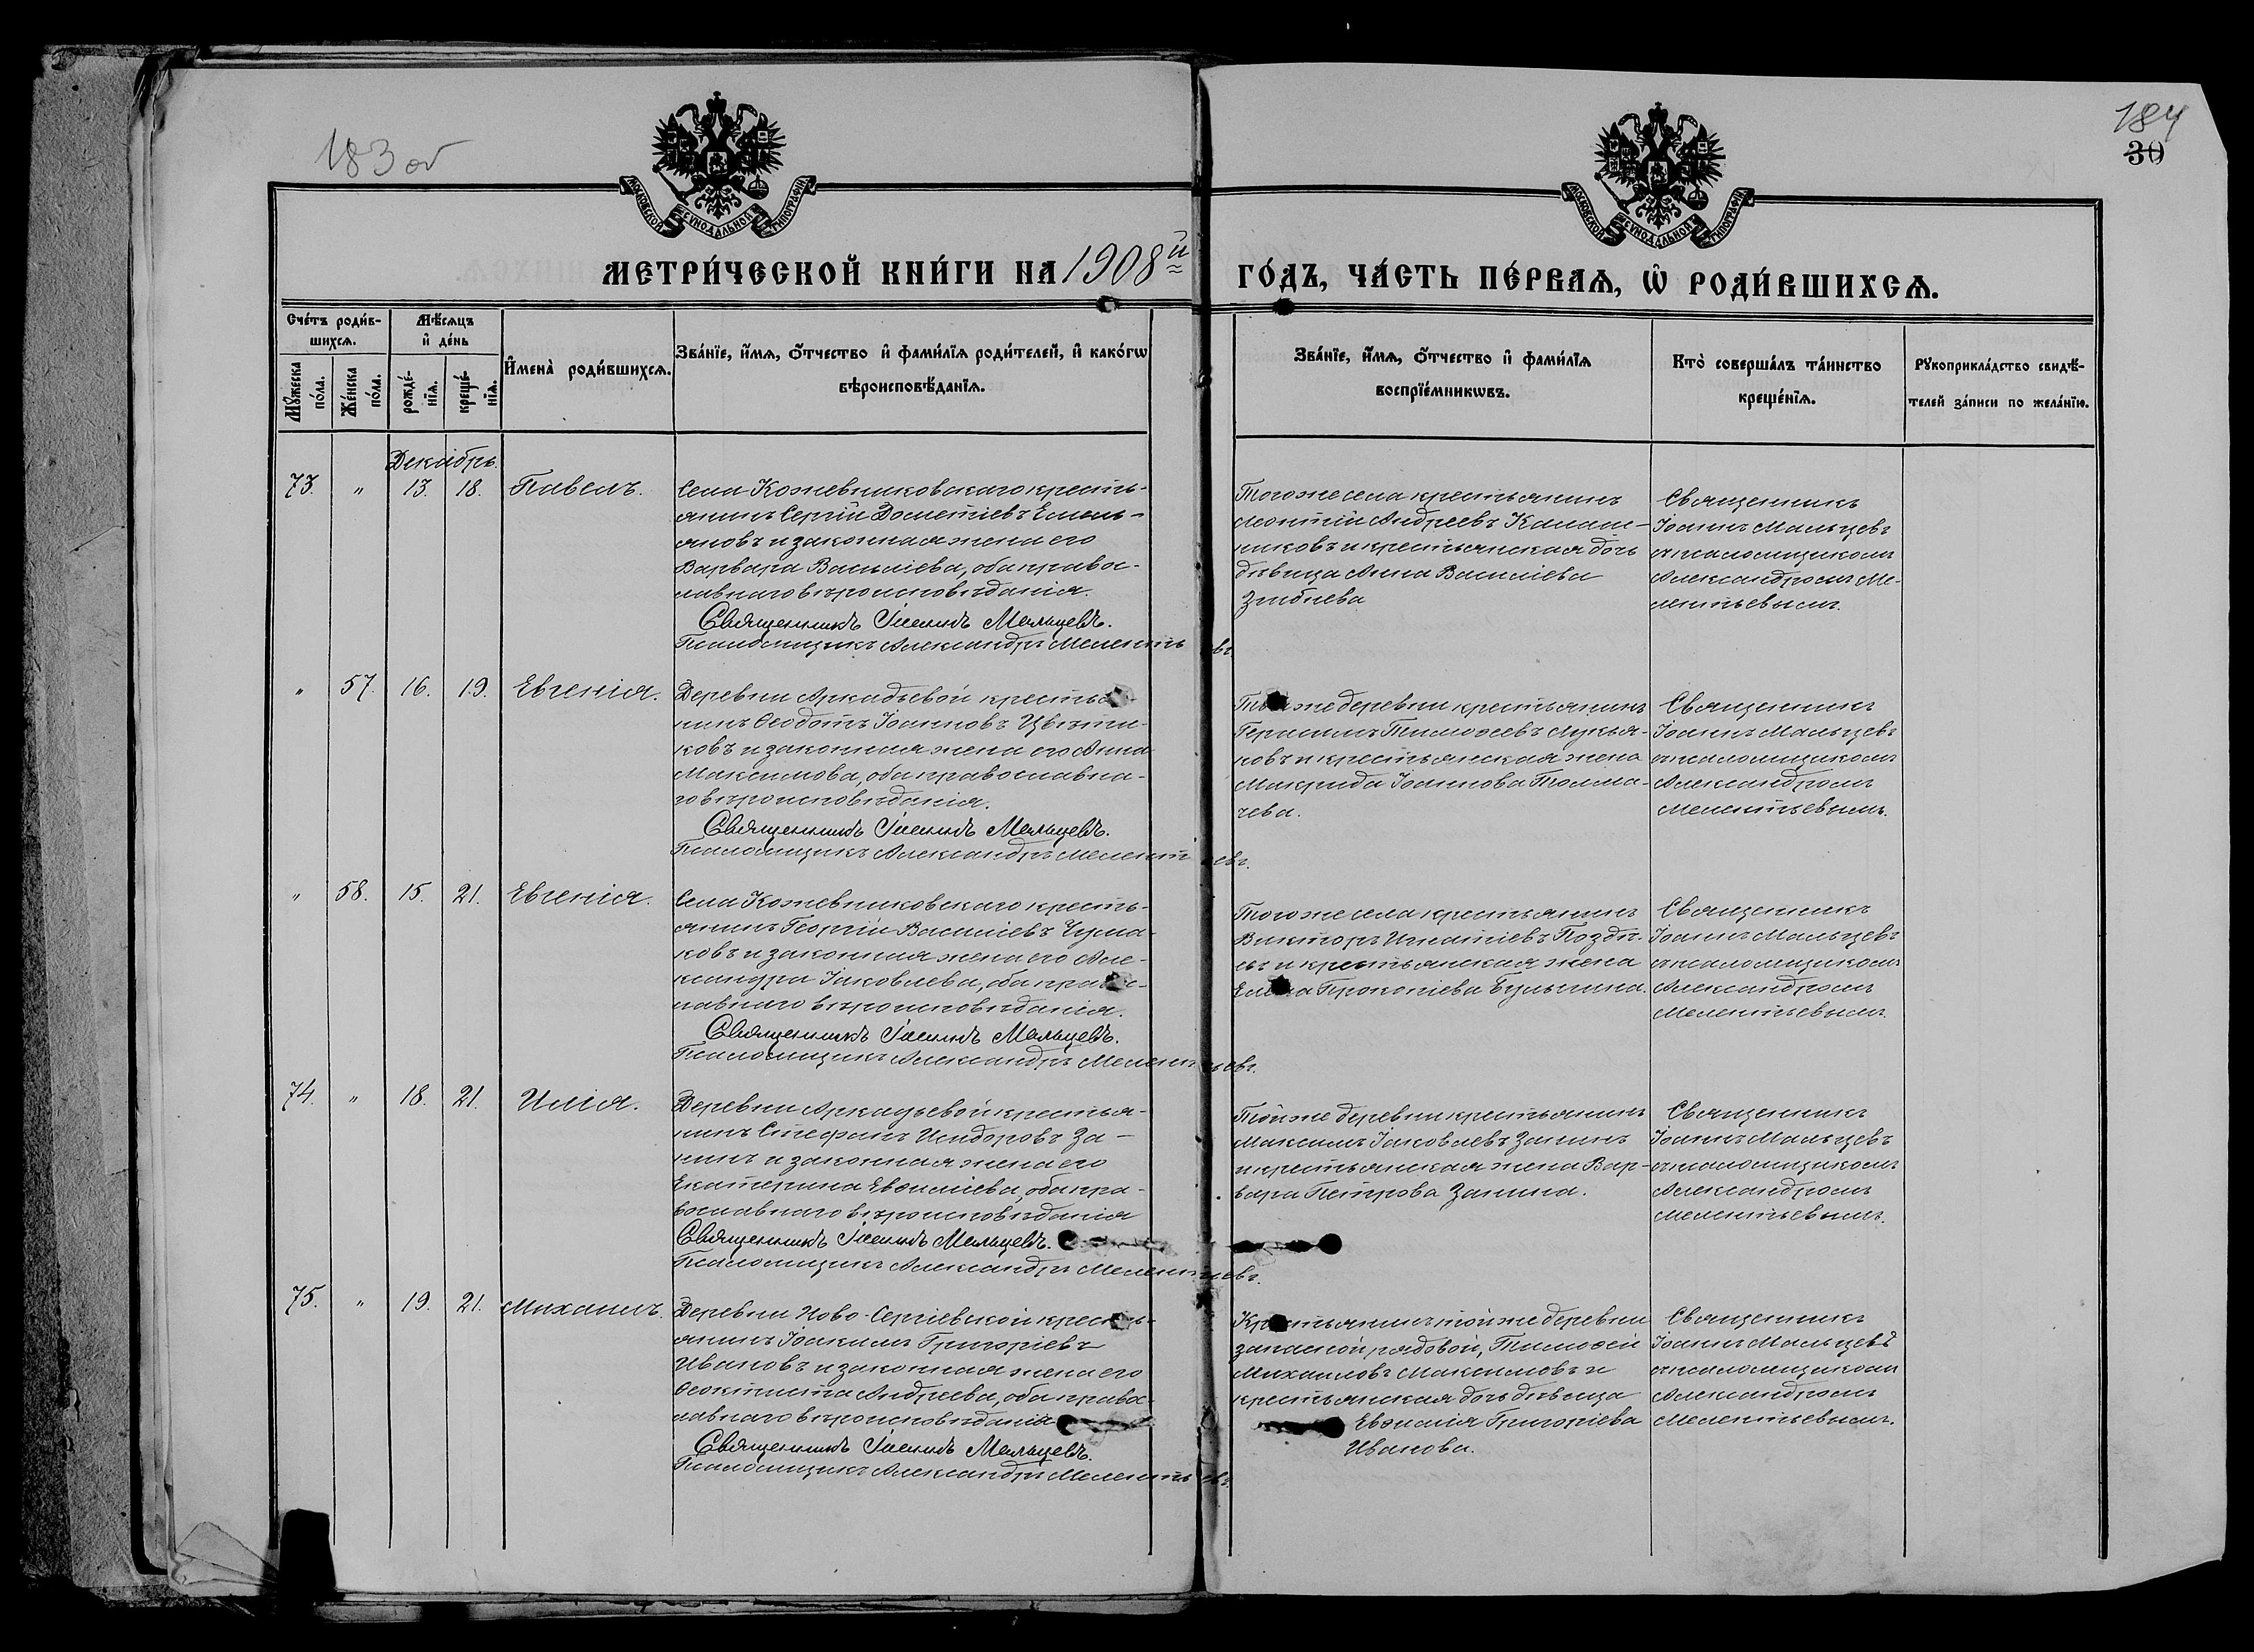 183 об
184
30
МОСКОВСКОЙ СѴНОДАЛЬНОЙ ТИПОГРАФІИ
МОСКОВСКОЙ СѴНОДАЛЬНОЙ ТИПОГРАФІИ
МЕТРИ́ЧЕСКОЙ КНИ́ГИ НА 1908й
ГО́ДЪ, ЧА́СТЬ ПЕ́РВАѦ, Ѡ РОДИ́ВШИХСѦ.
Сче́тъ роди́в-
шихсѧ.
Мѣ́сѧцъ
и҆ де́нь
Мꙋ́жеска
по́ла.
Же́нска
по́ла.
рожде́-
нїѧ.
креще́-
нїѧ.
И҆мена̀ роди́вшихсѧ.
Зва́нїе, и҆́мѧ, ѻ҆́тчество и҆ фами́лїѧ роди́телей, и҆ како́гѡ
вѣроисповѣ́данїѧ.
Зва́нїе, и҆́мѧ, ѻ҆́тчество и҆ фами́лїѧ
воспрїе́мникѡвъ.
Кто̀ соверша́лъ та́инство
креще́нїѧ.
Рꙋкоприкла́дство свидѣ́-
телей за́писи по жела́нїю.
Декабрь.
73. " 13. 18. Павелъ.
Села Кожевниковскаго кресть-
янинъ Сергій Дометіевъ Емель-
яновъ и законная жена его
Варвара Василіева, оба правос-
лавнаго вѣроисповѣданія.
Священникъ Іоаннъ Мальцевъ.
Псаломщикъ Александръ Мелентьевъ
Того же села крестьянинъ
Леонтій Андреевъ Калаш-
никовъ и крестьянская дочь
дѣвица Анна Василіева
Зтбнева
Священникъ
Іоаннъ Мальцевъ
съ псаломщикомъ
Александромъ Ме-
лентьевымъ.
" 57. 16. 19. Евгенія.
Деревни Аркадьевой крестья-
нинъ Ѳеодотъ Іоанновъ Цвѣтни-
ковъ и законная жена его Анна
Максимова, оба православна-
го вѣроисповѣданія.
Священникъ Іоаннъ Мальцевъ.
Псаломщикъ Александръ Мелентьевъ.
Той же деревни крестьянинъ
Герасимъ Тимоѳеевъ Лукья-
новъ и крестьянская жена
Макрида Іоаннова Толма-
чева.
Священникъ
Іоаннъ Мальцевъ
съ псаломщикомъ
Александромъ
Мелентьевымъ.
" 58. 15. 21. Евгенія.
Села Кожевниковскаго кресть-
янинъ Георгій Василіевъ Чума-
ковъ и законная жена его Але-
ксандра Іаковлева, оба правос-
лавнаго вѣроисповѣданія.
Священникъ Іоаннъ Мальцевъ.
Псаломщикъ Александръ Мелентьевъ.
Того же села крестьянинъ
Викторъ Игнатіевъ Поздѣ-
евъ и крестьянская жена
Елена Прокопіева Булыгина.
Священникъ
Іоаннъ Мальцевъ
съ псаломщикомъ
Александромъ
Мелентьевымъ.
74. " 18. 21. Илія.
Деревни Аркадьевой крестья-
нинъ Стефанъ Исидоровъ За-
нинъ и законная жена его
Екатерина Евѳиміева, оба пра-
вославнаго вѣроисповѣданія
Священникъ Іоаннъ Мальцевъ.
Псаломщикъ Александръ Мелентьевъ.
Той же деревни крестьянинъ
Максимъ Іаковлевъ Занинъ
и крестьянская жена Вар-
вара Петрова Занина.
Священникъ
Іоаннъ Мальцевъ
съ псаломщикомъ
Александромъ
Мелентьевымъ.
75. " 19. 21. Михаилъ.
Деревни Ново-Сергіевской кресть-
янинъ Іоакимъ Григоріевъ
Ивановъ и законная жена его
Ѳеоктиста Андреева, оба правос-
лавнаго вѣроисповѣданія
Священникъ Іоаннъ Мальцевъ.
Псаломщикъ Александръ Мелентьевъ.
Крестьянинъ той же деревни
запасной рядовой, Тимоѳей
Михаиловъ Максимовъ и
крестьянская дочь дѣвица
Евѳимія Григоріева
Иванова.
Священникъ
Іоаннъ Мальцевъ
съ псаломщикомъ
Александромъ
Мелентьевымъ.